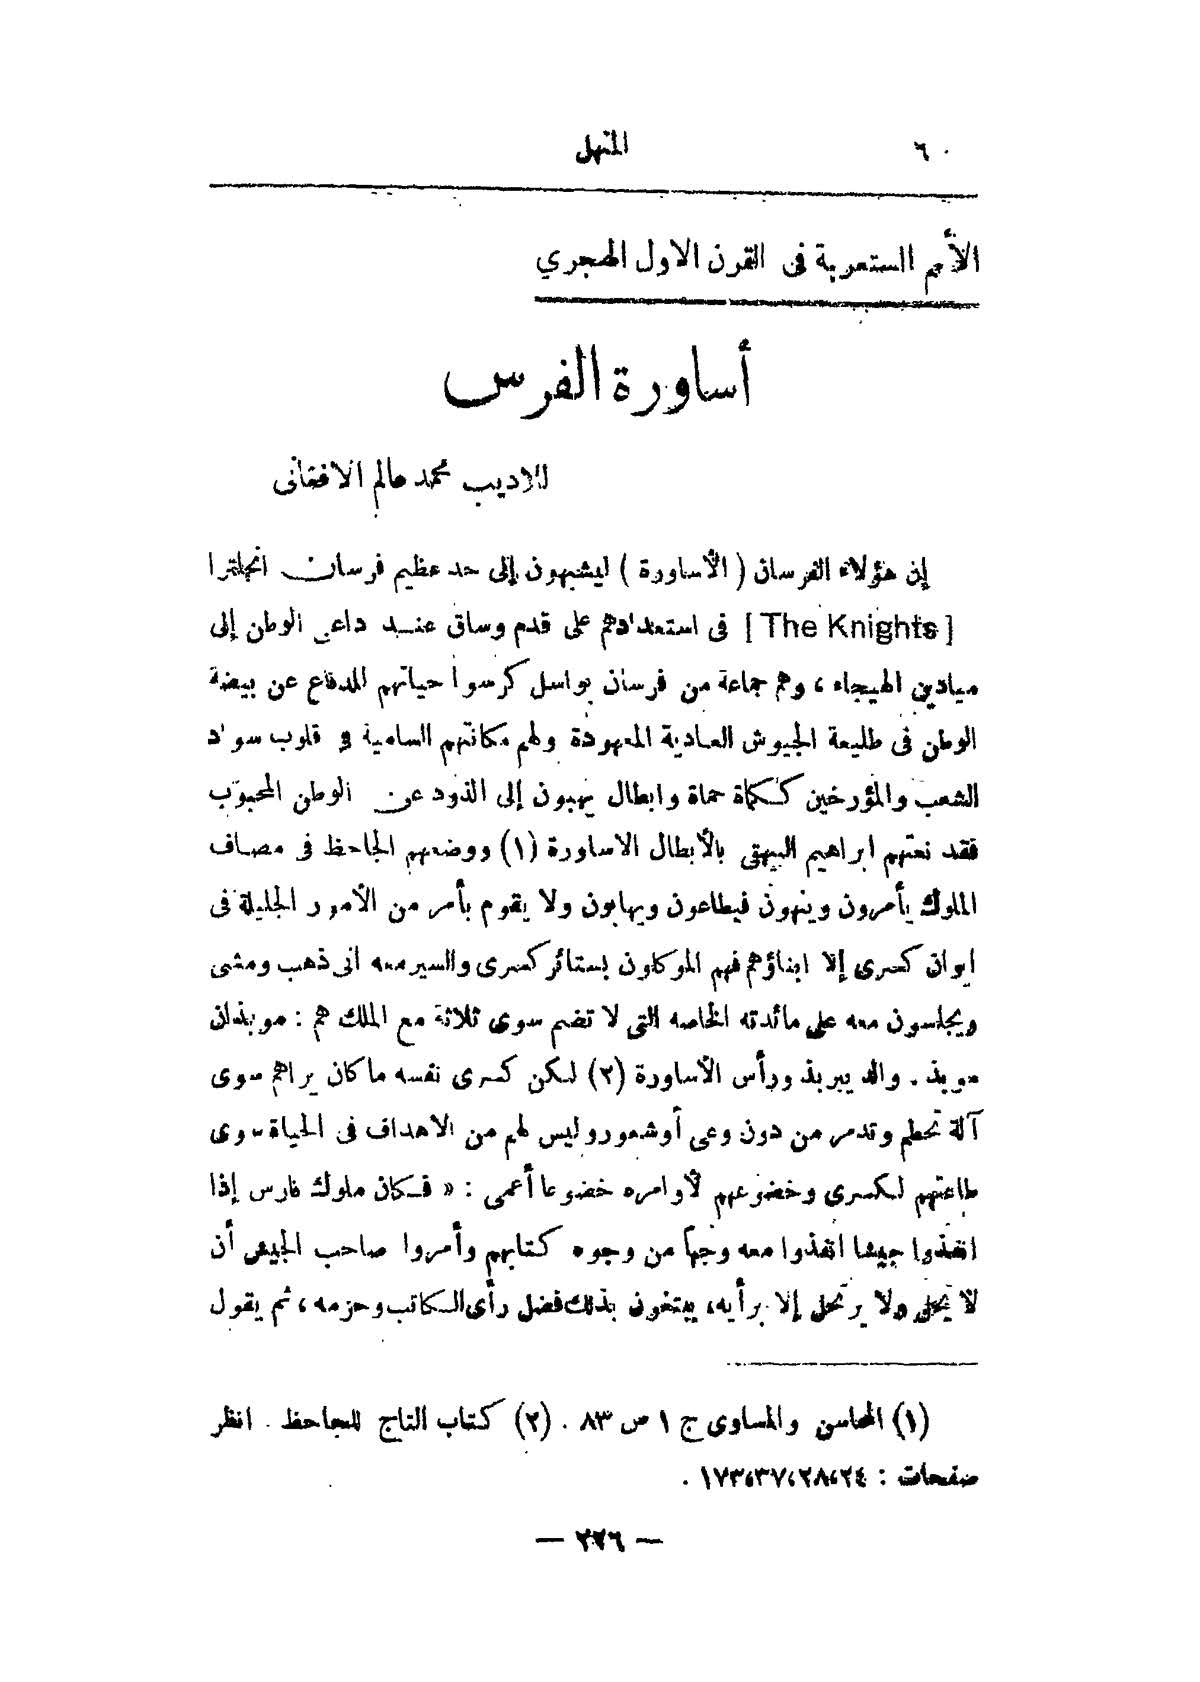 ٦٠ المنهل
الأمم المستعربة فى القرن الاول الهجري
أساورة الفرس
للاديب محمد عالم الافغانى
إن هؤلاء الفرسان ( الأساورة ) ليشبهون إلى حد عظيم فرسان انجلترا
[ The Knights ] فى استعدادهم على قدم وساق عند داعى الوطن إلى
ميادين الهيجاء ، وهم جماعة من فرسان بواسل كرسوا حياتهم للدفاع عن بيضة
الوطن فى طليعة الجيوش العادية المعهودة ولهم مكانتهم السامية فى قلوب سواد
الشعب والمؤرخين ككماة حماة وابطال يهبون إلى الذود عن الوطن المحبوب
فقد نعتهم ابراهيم البيهقى بالأبطال الاساورة (١) ووضعهم الجاحظ فى مصاف
الملوك يأمرون وينهون فيطاعون ويهابون ولا يقوم بأمر من الأمور الجليلة فى
ايوان كسرى إلا ابناؤهم فهم الموكلون بستائر كسرى والسير معه انى ذهب ومشى
ويجلسون معه على مائدته الخاصه التى لا تضم سوى ثلاثة مع الملك هم : موبذان
موبذ . والد يبربذ ورأس الأساورة (٢) لكن كسرى نفسه ما كان يراهم سوى
آلة تحطم وتدمر من دون وعى أوشعور وليس لهم من الاهداف فى الحياة سوى
طاعتهم لكسرى وخضوعهم لأوامره خضوعا أعمى : « فكان ملوك فارس إذا
انفذوا جيشا انفذوا معه وجهاً من وجوه كتابهم وأمروا صاحب الجيش أن
لا يحل ولا يرتحل إلا برأيه، يبتغون بذلك فضل رأى الكاتب وحزمه ، ثم يقول
(١) المحاسن والمساوى ج ١ ص ٨٣ . (٢) كتاب التاج للجاحظ . انظر
صفحات : ٢٤،٢٨،٣٧،١٧٣ .
— ٢٢٦ —